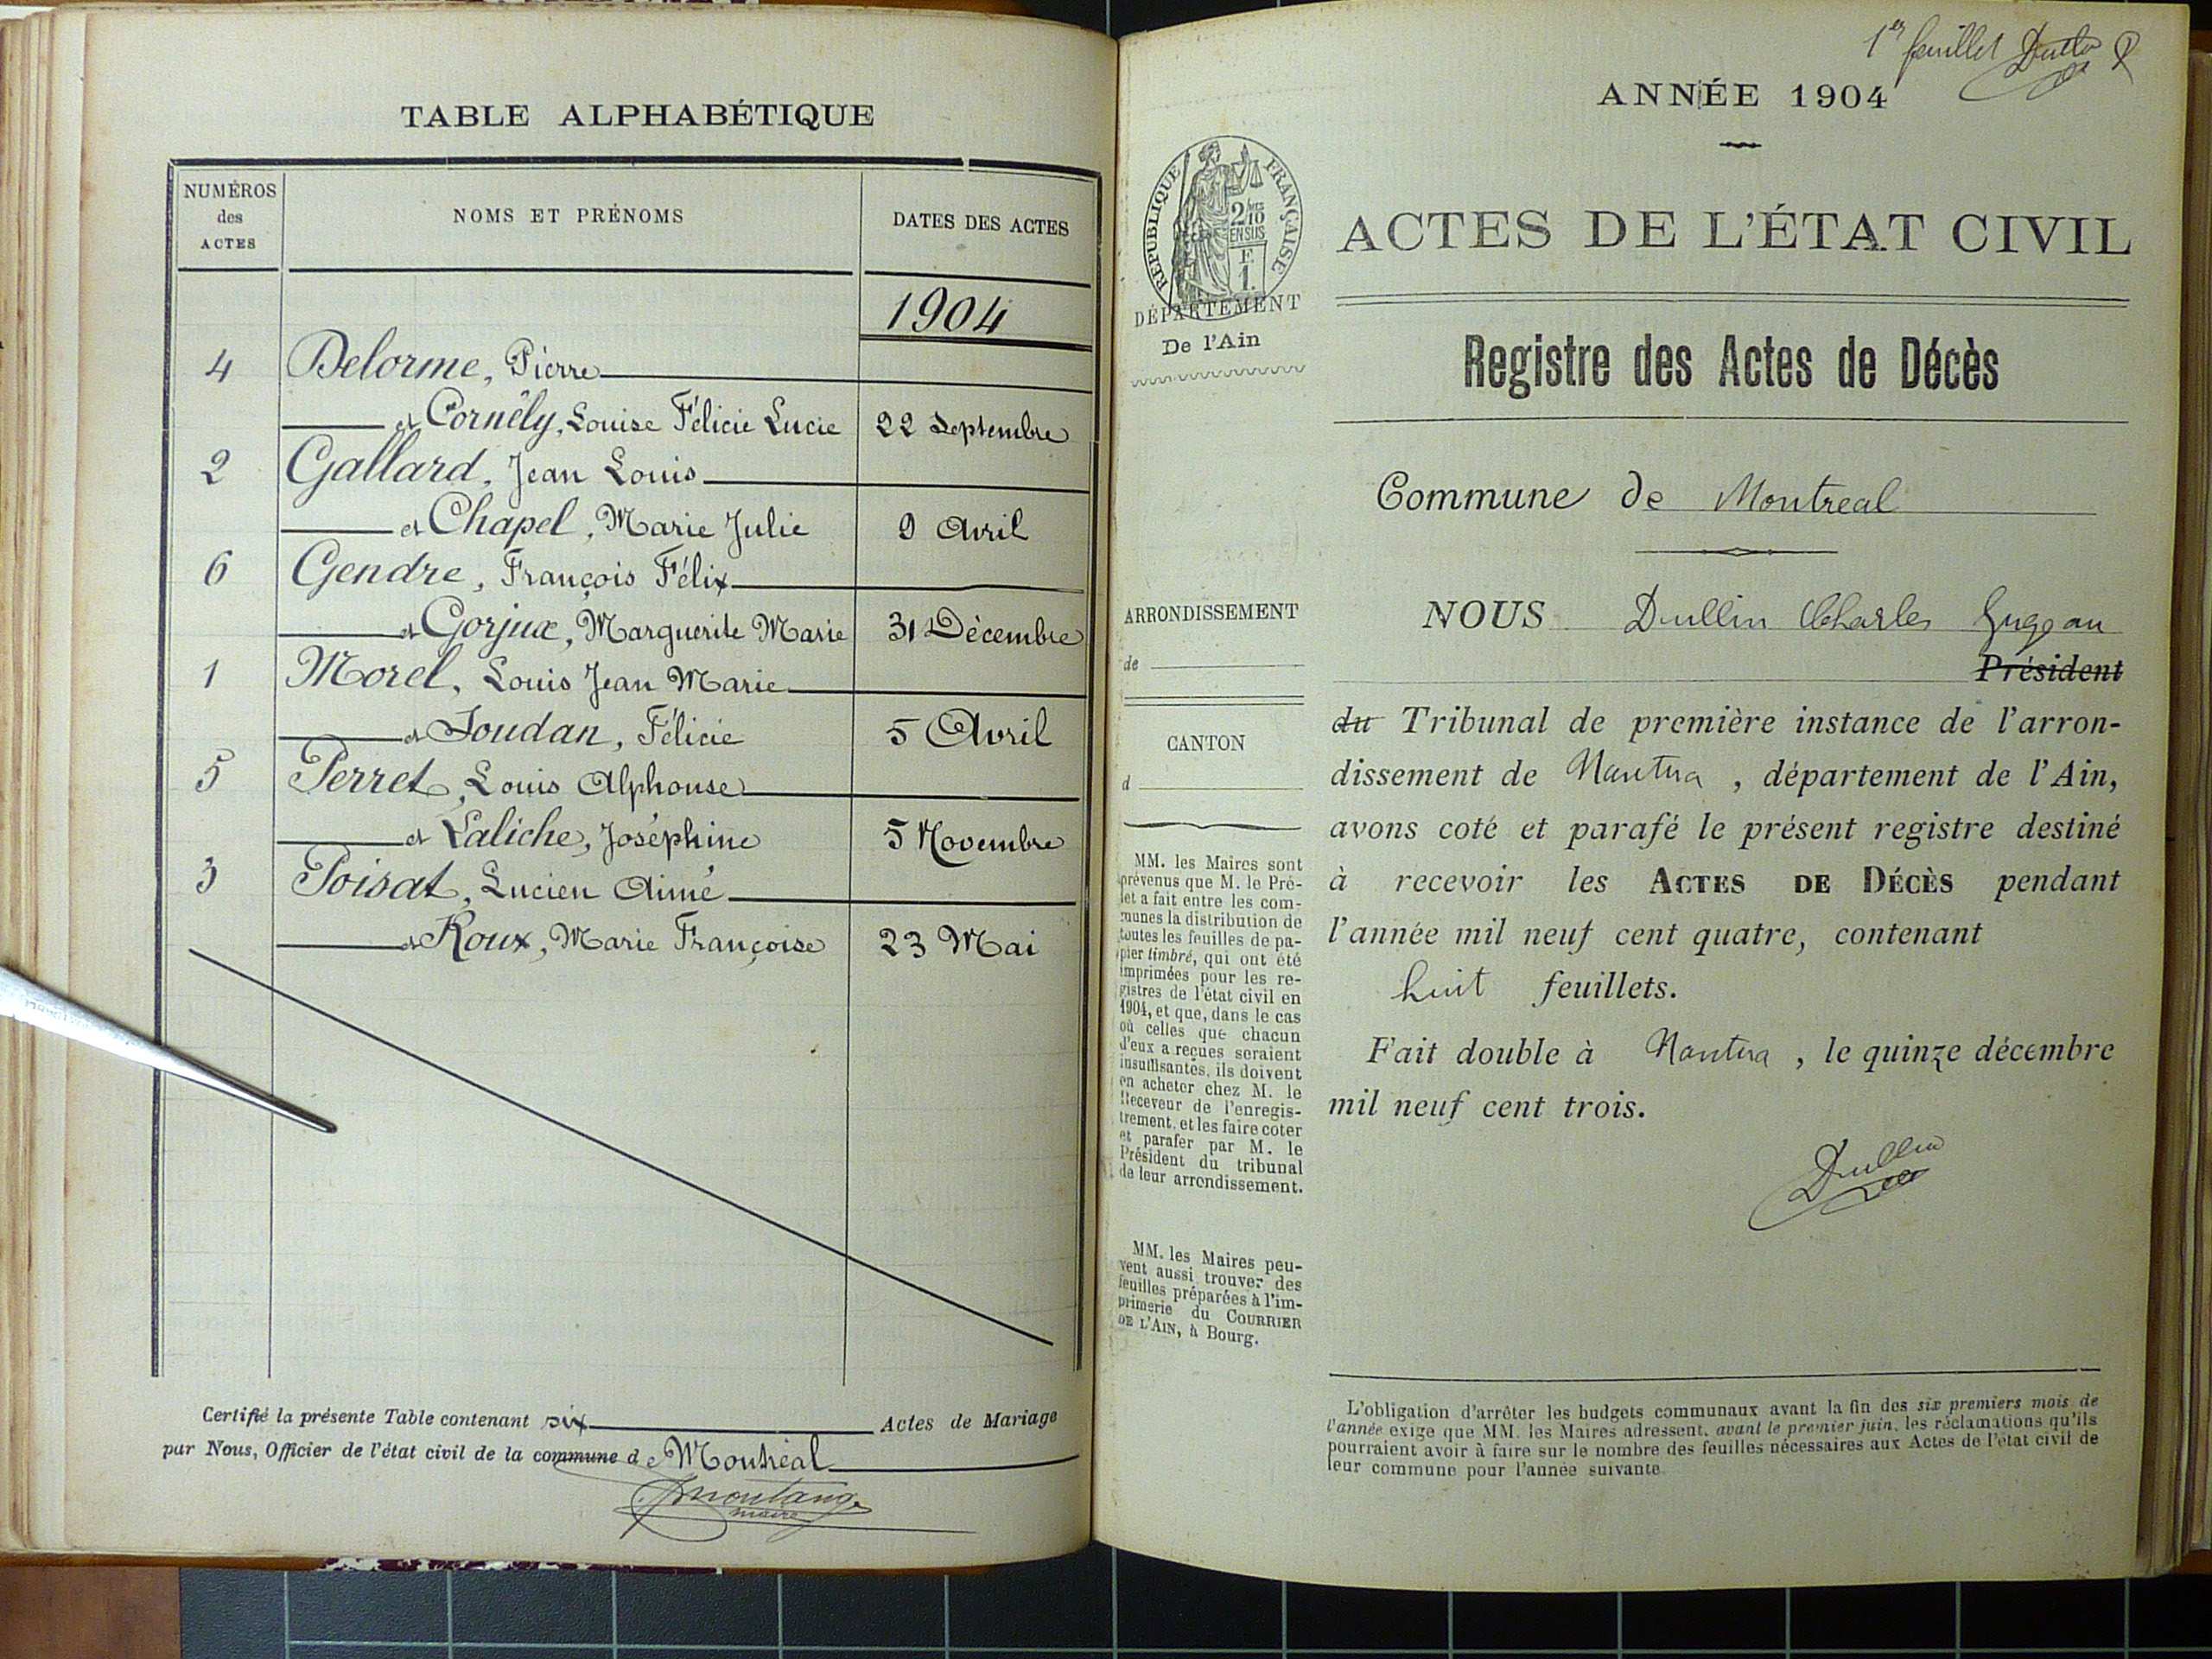 TABLE ALPHABÉTIQUE
NUMÉROS
des
ACTES
NOMS ET PRÉNOMS
DATES DES ACTES
1904
4 Delorme, Pierre
et Cornély, Louise Félicie Lucie 22 Septembre
2 Gallard, Jean Louis
et Chapel, Marie Julie 9 Avril
6 Gendre, François Félix
et Gorjux, Marguerite Marie 31 Décembre
1 Morel, Louis Jean Marie
et Joudan, Félicie 5 Avril
5 Perret, Louis Alphonse
et Laliche, Joséphine 5 Novembre
3 Poisat, Lucien Aimé
et Roux, Marie Françoise 23 Mai
Certifié la présente Table contenant six Actes de Mariage
par Nous, Officier de l'état civil de la commune de Montréal
maire
1er feuillet
ANNÉE 1904
RÉPUBLIQUE FRANÇAISE
2/10
EN SUS
F.
1.
DÉPARTEMENT
De l'Ain
ACTES DE L'ÉTAT CIVIL
Registre des Actes de Décès
Commune de Montreal
ARRONDISSEMENT
de
CANTON
d
MM. les Maires sont
prévenus que M. le Pré-
fet a fait entre les com-
munes la distribution de
toutes les feuilles de pa-
pier timbré, qui ont été
imprimées pour les re-
gistres de l'état civil en
1904, et que, dans le cas
où celles que chacun
d'eux a reçues seraient
insuffisantes, ils doivent
en acheter chez M. le
Receveur de l'enregis-
trement, et les faire coter
et parafer par M. le
Président du tribunal
de leur arrondissement.
MM. les Maires peu-
vent aussi trouver des
feuilles préparées à l'im-
primerie du COURRIER
DE L'AIN, à Bourg.
NOUS Dullin Charles Juge au
Président
du Tribunal de première instance de l'arron-
dissement de Nantua, département de l'Ain,
avons coté et parafé le présent registre destiné
à recevoir les ACTES DE DÉCÈS pendant
l'année mil neuf cent quatre, contenant
huit feuillets.
Fait double à Nantua, le quinze décembre
mil neuf cent trois.
Dullin
L'obligation d'arrêter les budgets communaux avant la fin des six premiers mois de
l'année exige que MM. les Maires adressent, avant le premier juin, les réclamations qu'ils
pourraient avoir à faire sur le nombre des feuilles nécessaires aux Actes de l'état civil de
leur commune pour l'année suivante.